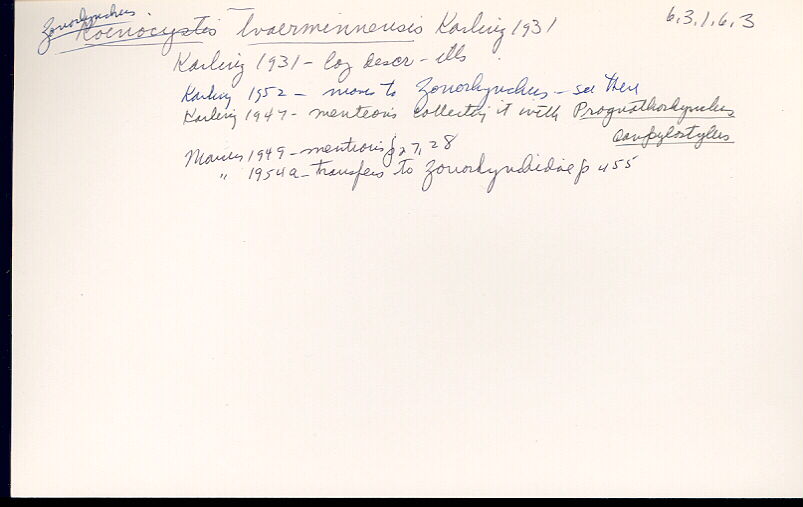 Zonorhynchus 6.3.1.6.3
Koenocystis tvaerminnensis Karling 1931
Karling 1931 - log descr - ills
Karling 1952 - moves to Zonorhynchus - see there
Karling 1947 - mentions collecting it with Prognathorhynchus
campylostylus
Marcus 1949 - mentions p 27, 28
" 1954a - transfers to Zonorhynchidae p 455